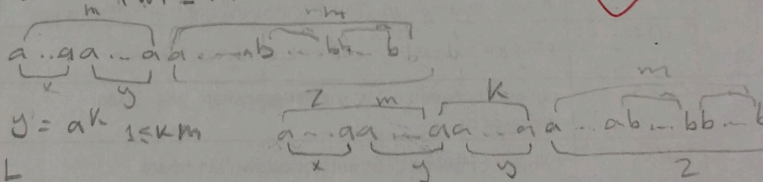 m
a..aa...aa.....ab...bb...b
x y z
y = a^k 1≤k m
m k m
a...aa...aa...a a...ab...bb...b
x y y z